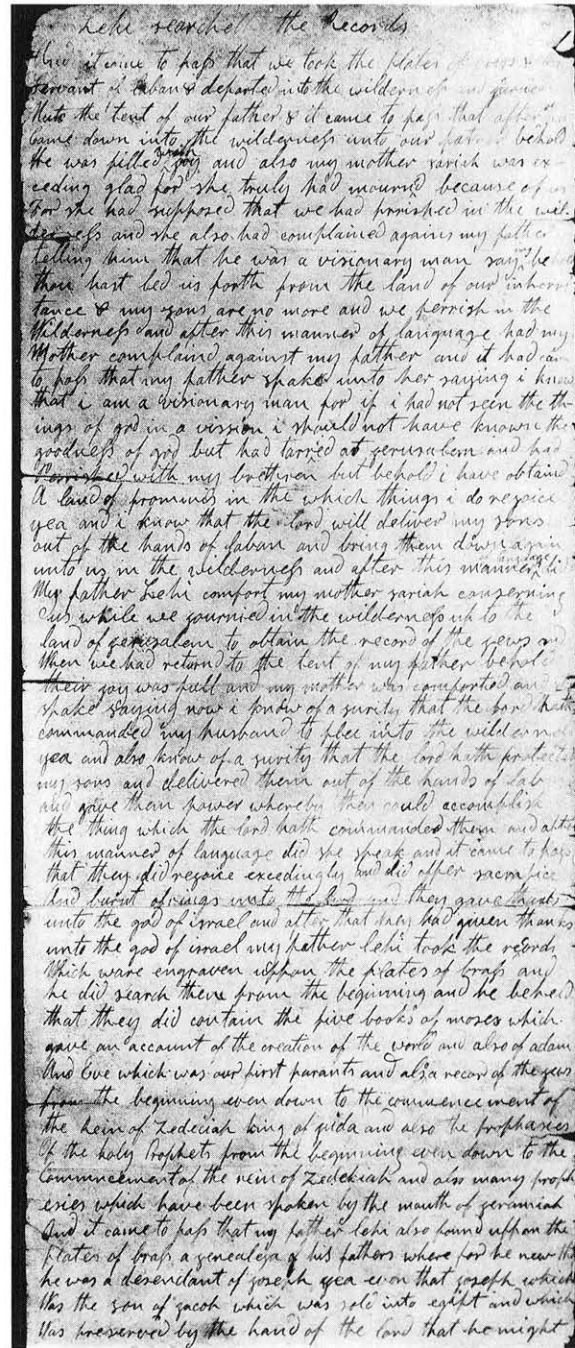 Lehi searched the Records
And it came to pass that we took the plates of brass &
servant of laban & departed into the wilderness and
unto the tent of our father & it came to pass that after
came down into the wilderness unto our behold
he was filled with joy and also my mother sariah was ex
ceding glad for she truly had mournd because of us
For she had supposed that we had perrished in the wil
derness and she also had complained against my father
telling him that he was a visionary man saying
thou hast led us forth from the land of our inheri
tance & my sons are no more and we perrish in the
Wilderness and after this manner of language had my
Mother complaind against my father and it had came
to pass that my father spake unto her saying i know
that i am a visionary man for if i had not seen the th
ings of god in a vission i should not have known the
goodness of god but had tarried at jerusalem and had
perrished with my brethren but behold i have obtaind
A land of prommis in the which things i do rejoice
yea and i know that the lord will deliver my sons
out of the hands of laban and bring them down again
unto us in the wilderness and after this manner language did
My father Lehi comfort my mother sariah conserning
us while we journied in the wilderness up to the
land of jerusalem to obtain the record of the jews and
When we had returnd to the tent of my father behold
their joy was full and my mother was comforted and
spake saying now i know of a surity that the lord hath
commanded my husband to flee into the wilderness
yea and also know of a surity that the lord hath protected
my sons and delivered them out of the hands of lab
and give them power whereby they could accomplish
the thing which the lord hath commanded them and after
this manner of language did she speak and it came to pass
that they did rejoice exceedingly and did offer sacrafice
And burnt offrings unto the lord and they gave thanks
unto the god of israel and after that they had given thanks
unto the god of israel my father lehi took the records
Which ware engraven uppon the plates of brass and
he did search them from the beginning and he beheld
that they did contain the five books of moses which
gave an account of the creation of the world and also of adam
And Eve which was our first parants and also a recor of the jews
from the beginning even down to the commencement of
the rein of Zedeciah king of juda and also the prophasies
Of the holy Prophets from the beginning even down to the
Commencement of the rein of Zedekiah and also many proph
esies which have been spoken by the mouth of jeramiah
And it came to pass that my father lehi also found uppon the
plates of brass a genealoga of his fathers where for he new
he was a desendant of joseph yea even that joseph which
Was the son of jacob which was sold into egipt and which
Was preserved by the hand of the lord that he might